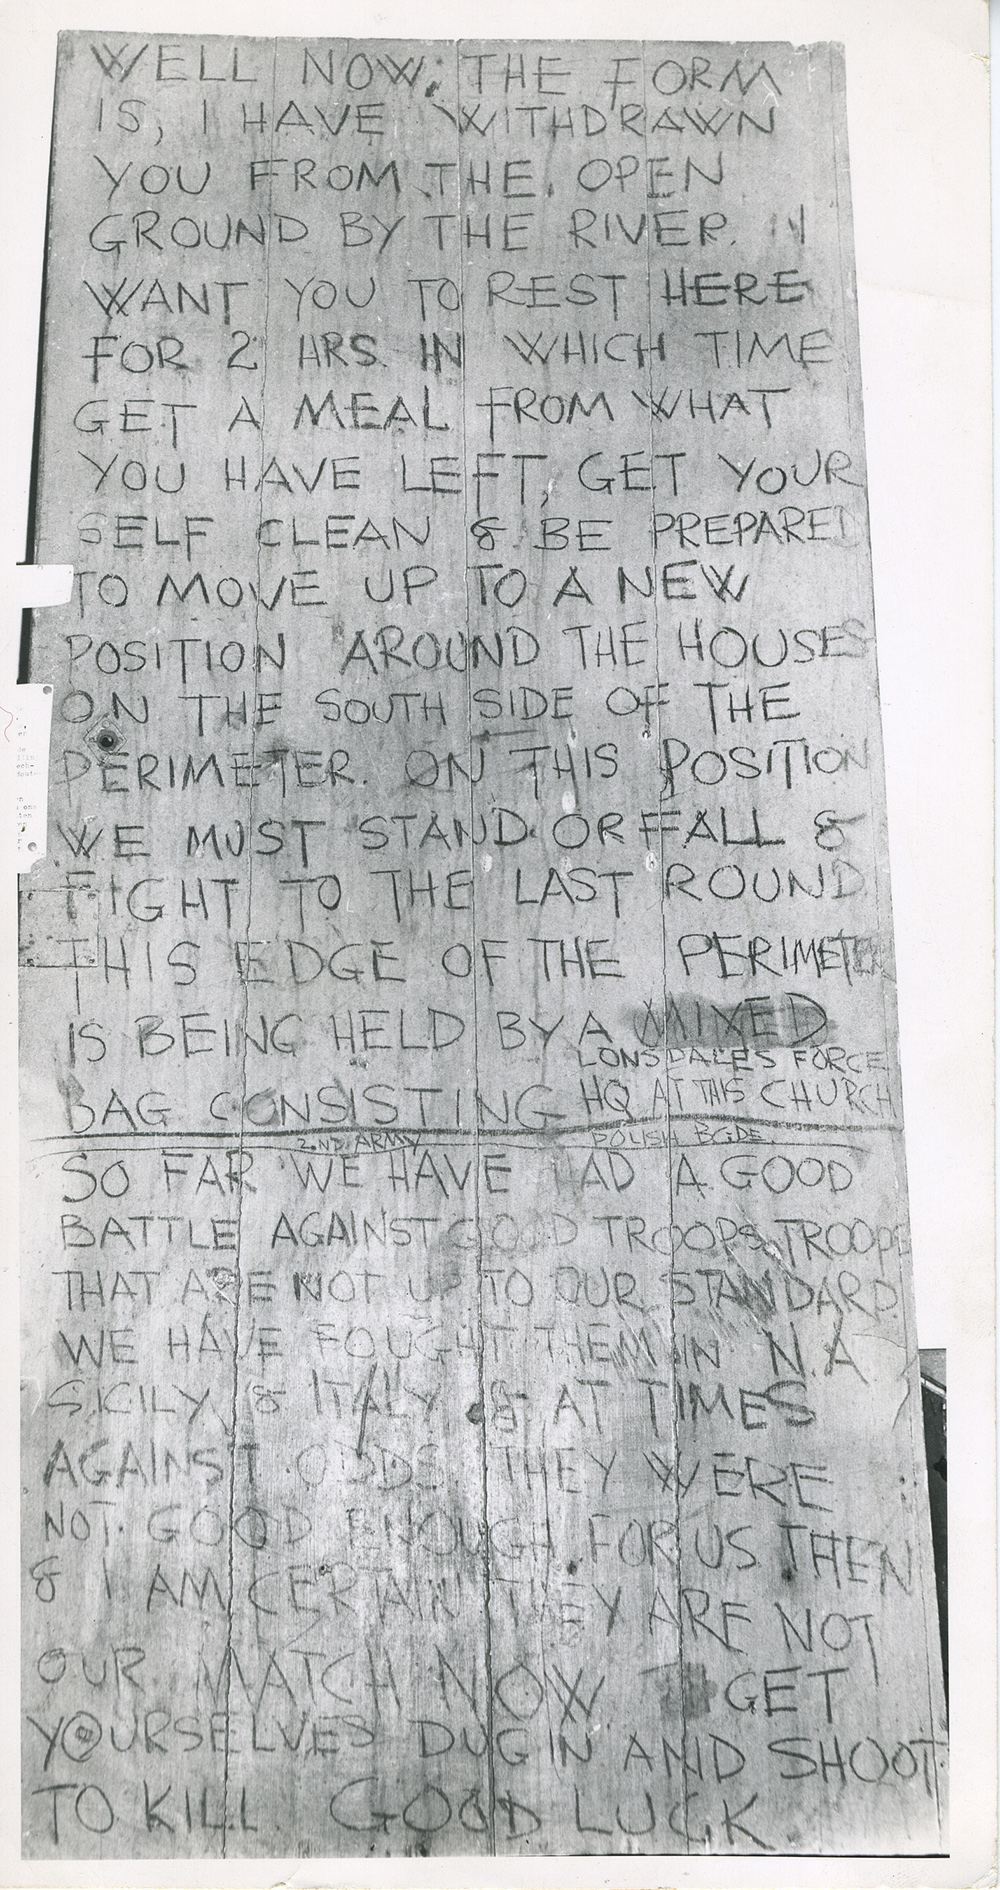 WELL NOW; THE FORM
IS, I HAVE WITHDRAWN
YOU FROM THE OPEN
GROUND BY THE RIVER. I
WANT YOU TO REST HERE
FOR 2 HRS IN WHICH TIME
GET A MEAL FROM WHAT
YOU HAVE LEFT, GET YOUR
SELF CLEAN & BE PREPARED
TO MOVE UP TO A NEW
POSITION AROUND THE HOUSES
ON THE SOUTH SIDE OF THE
PERIMETER. ON THIS POSITION
WE MUST STAND OR FALL &
FIGHT TO THE LAST ROUND.
THIS EDGE OF THE PERIMETER
IS BEING HELD BY A MIXED
LONSDALES FORCE
BAG CONSISTING HQ AT THIS CHURCH
2ND ARMY POLISH BGDE.
SO FAR WE HAVE HAD A GOOD
BATTLE AGAINST GOOD TROOPS, TROOPS
THAT ARE NOT UP TO OUR STANDARD.
WE HAVE FOUGHT THEM IN N.A
SICILY & ITALY & AT TIMES
AGAINST ODDS. THEY WERE
NOT GOOD ENOUGH FOR US THEN
& I AM CERTAIN THEY ARE NOT
OUR MATCH NOW GET
YOURSELVES DUG IN AND SHOOT
TO KILL. GOOD LUCK